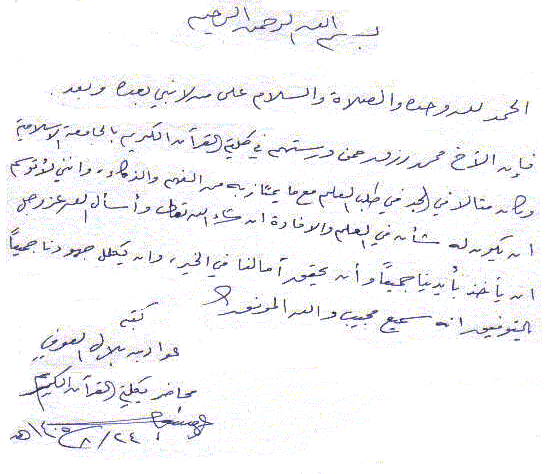 بسم الله الرحمن الرحيم
الحمد لله وحده والصلاة والسلام على من لا نبي بعده وبعد .
فإن الأخ محمد رزور ممن درستهم في كلية القرآن الكريم بالجامعة الإسلامية
وكان مثالا في الجد في طلب العلم مع ما يمتاز به من الفهم والذكاء، وإنني لأتوسم
ان يكون له شأن في العلم والافادة ان شاء الله تعالى وأسأل الله عز وجل
ان يأخذ بأيدينا جميعاً وأن يحقق آمالنا في الخير، وان يكلل جهودنا جميعاً
بالتوفيق انه سميع مجيب والله الموفق
كتبه
عواد بن بلال العوفي
محاضر بكلية القرآن الكريم
٢٤/٨/١٤٠٥هـ